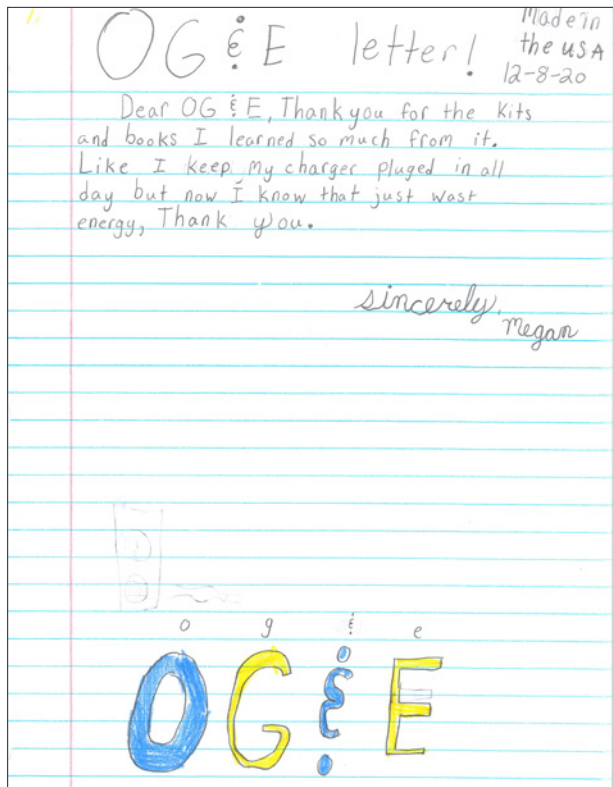 OG & E letter!
Made in
the USA
12-8-20
Dear OG & E, Thank you for the Kits
and books I learned so much from it.
Like I keep my charger pluged in all
day but now I know that just wast
energy, Thank you.
sincerely,
megan
o g & e
OG & E